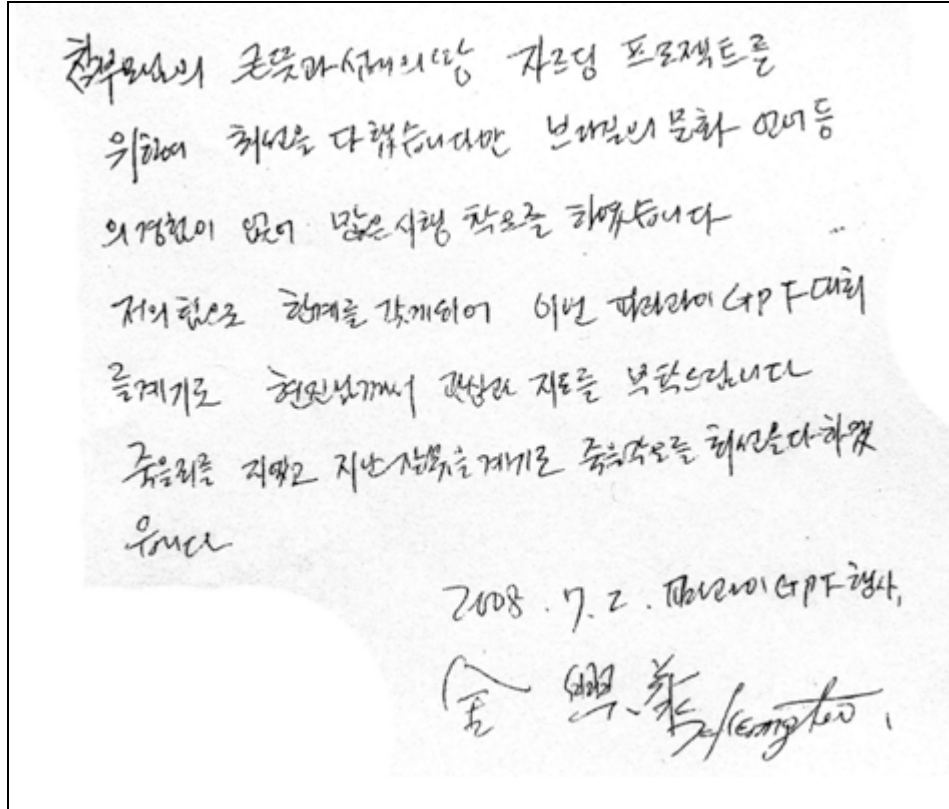 참부모님의 큰뜻과 섭리의 땅 자르딩 프로젝트를
위하여 최선을 다했습니다만 브라질의 문화 언어 등
의 경험이 없어 많은 시행 착오를 하였습니다
저의 힘으로 한계를 갖게되어 이번 파라과이 GPF 대회
를 계기로 현진님께서 관심과 지도를 부탁드립니다
죽을죄를 지었고 지난 잘못을 계기로 죽을각오를 최선을다하겠
습니다
2008. 7. 2. 파라과이 GPF 행사,
金